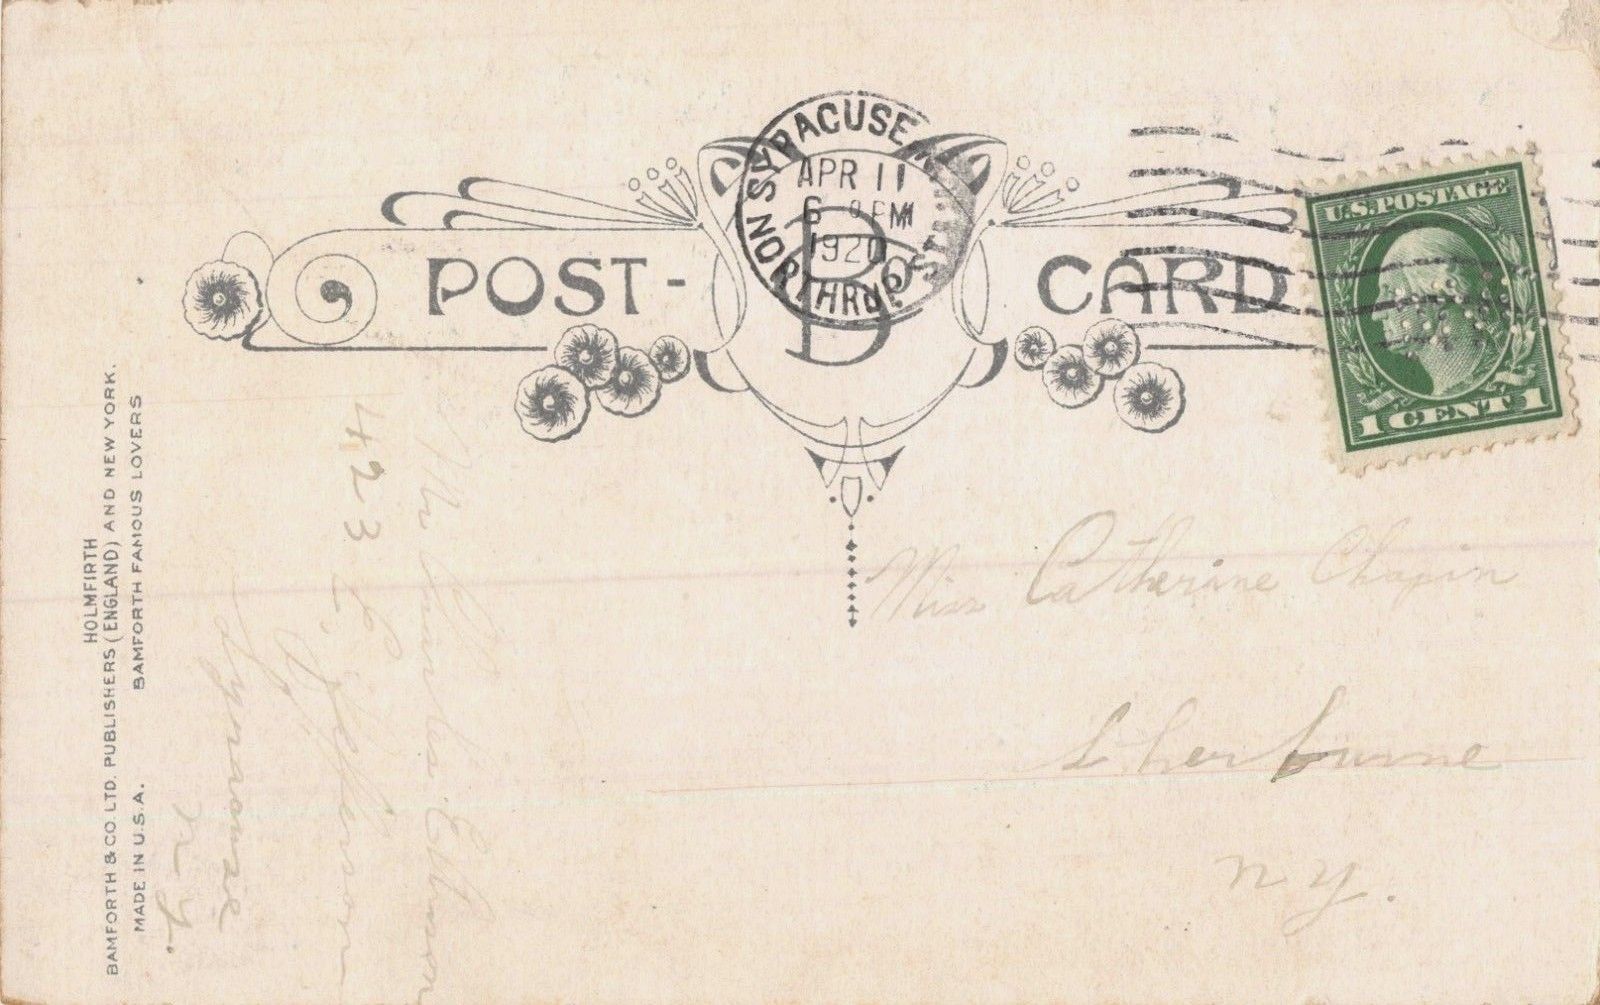 SYRACUSE N.Y.
APR 11
6 PM
1920
NORTHRUP STA.
POST-CARD
B
U.S.POSTAGE
1 CENT 1
Miss Catherine Chapin
Sherburne
N Y.
Mr Charles
423 E. Jefferson
Syracuse
N.Y.
HOLMFIRTH
BAMFORTH & CO. LTD. PUBLISHERS (ENGLAND) AND NEW YORK.
MADE IN U.S.A. BAMFORTH FAMOUS LOVERS